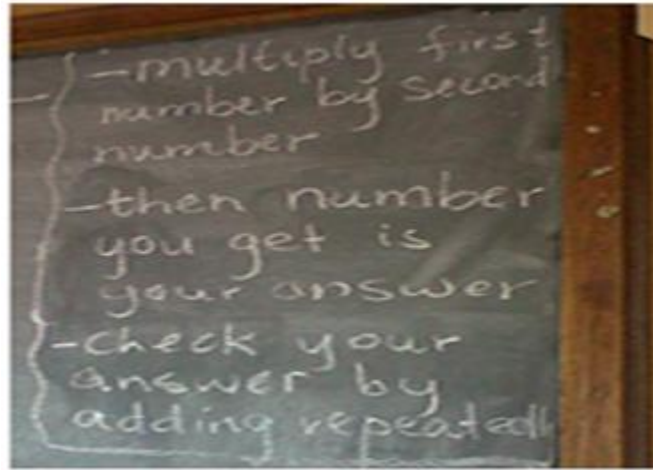 - multiply first
number by second
number
- then number
you get is
your answer
- check your
answer by
adding repeatedl